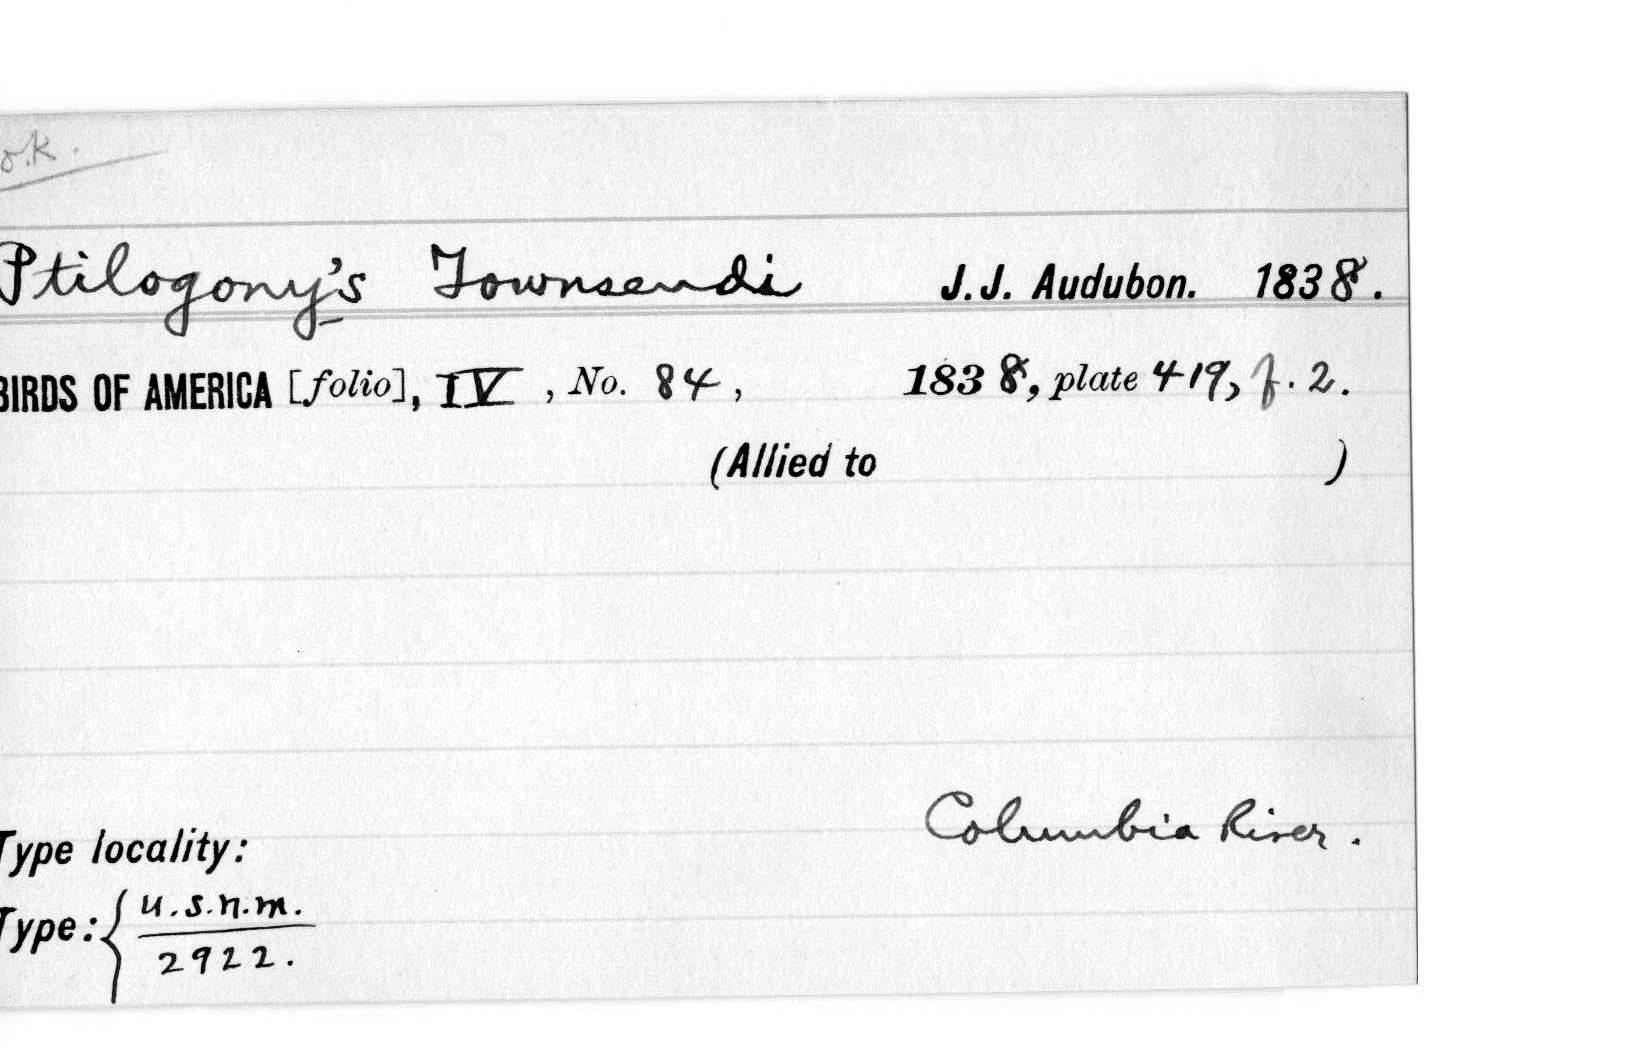 o.k.
Ptilogony's Townsendi J.J. Audubon. 1838.
BIRDS OF AMERICA [folio], IV, No. 84, 1838, plate 419, f. 2.
(Allied to )
Columbia River.
Type locality:
Type: { U.S.N.M.
2922.